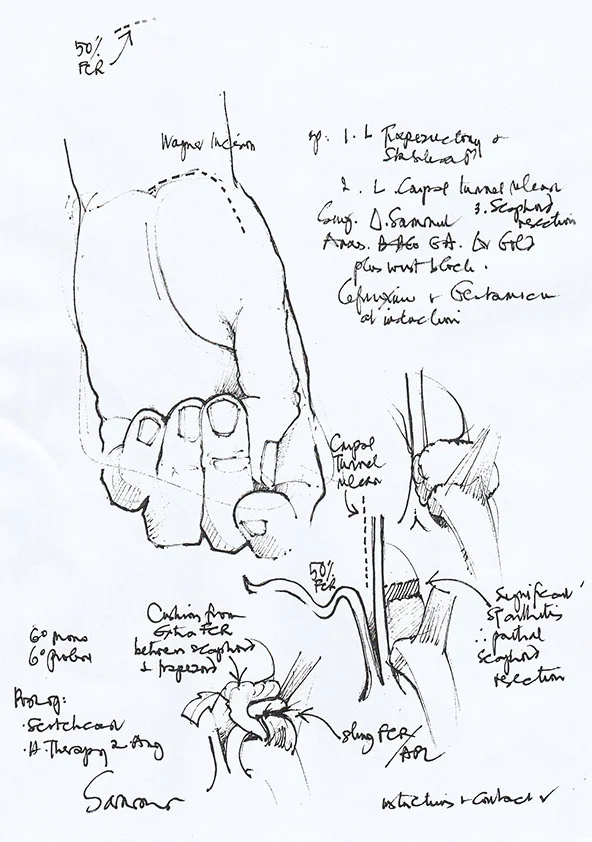 50%
FCR
Wagner Incision
op: 1. L Trapeziectomy +
Stabilisation
2. L Carpal tunnel release
3. Scaphoid
resection
Surg. D. Sammut
Anaes. GA. Dr Gold
plus wrist block.
Cefuroxime + Gentamicin
at induction
Carpal
Tunnel
release
50%
FCR
Significant
ST arthritis
∴ partial
scaphoid
resection
Cushion from
Extra FCR
between scaphoid
+ trapezoid
6° mono
6° prolene
Post op:
· Scotchcast
· H. Therapy
sling FCR/
APL
Sammut
instructions + Contact ✓